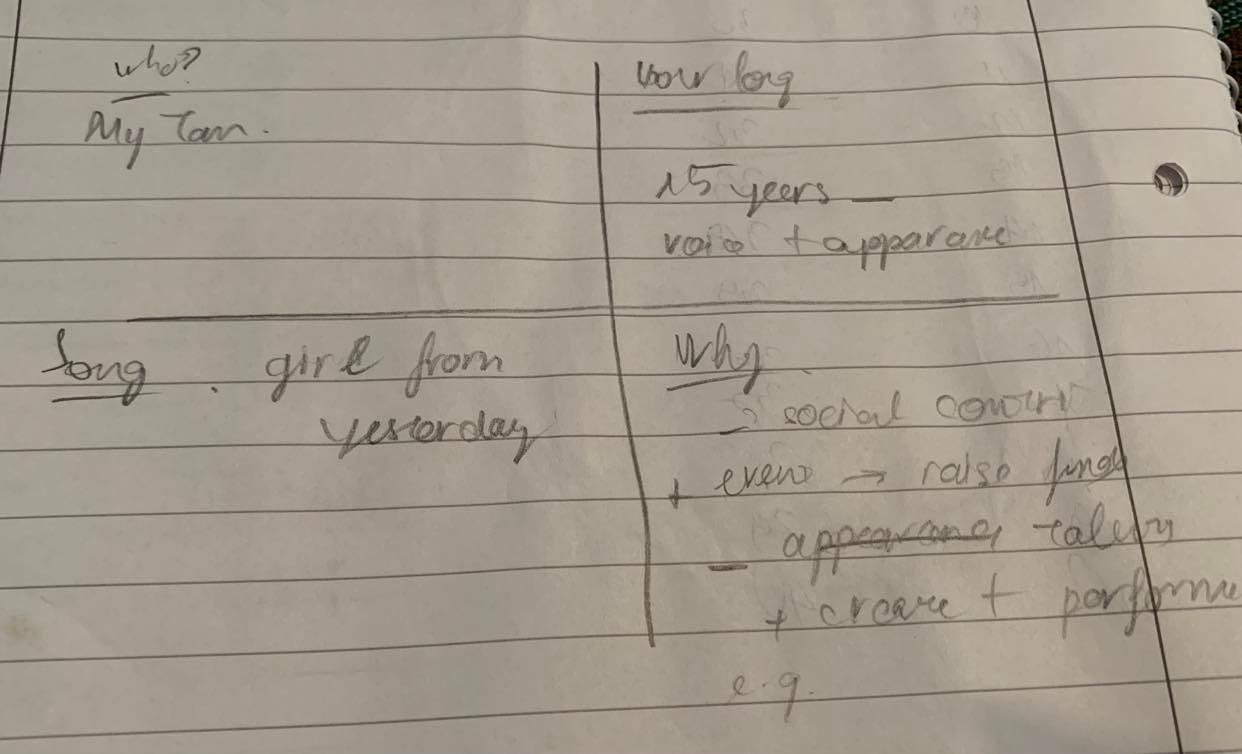 who?
My Tam.
how long
15 years —
voice + apparance
Song . girl from
yesterday
Why
- social
+ event → raise funds
- appearance talent
+ create + performe
e.g.